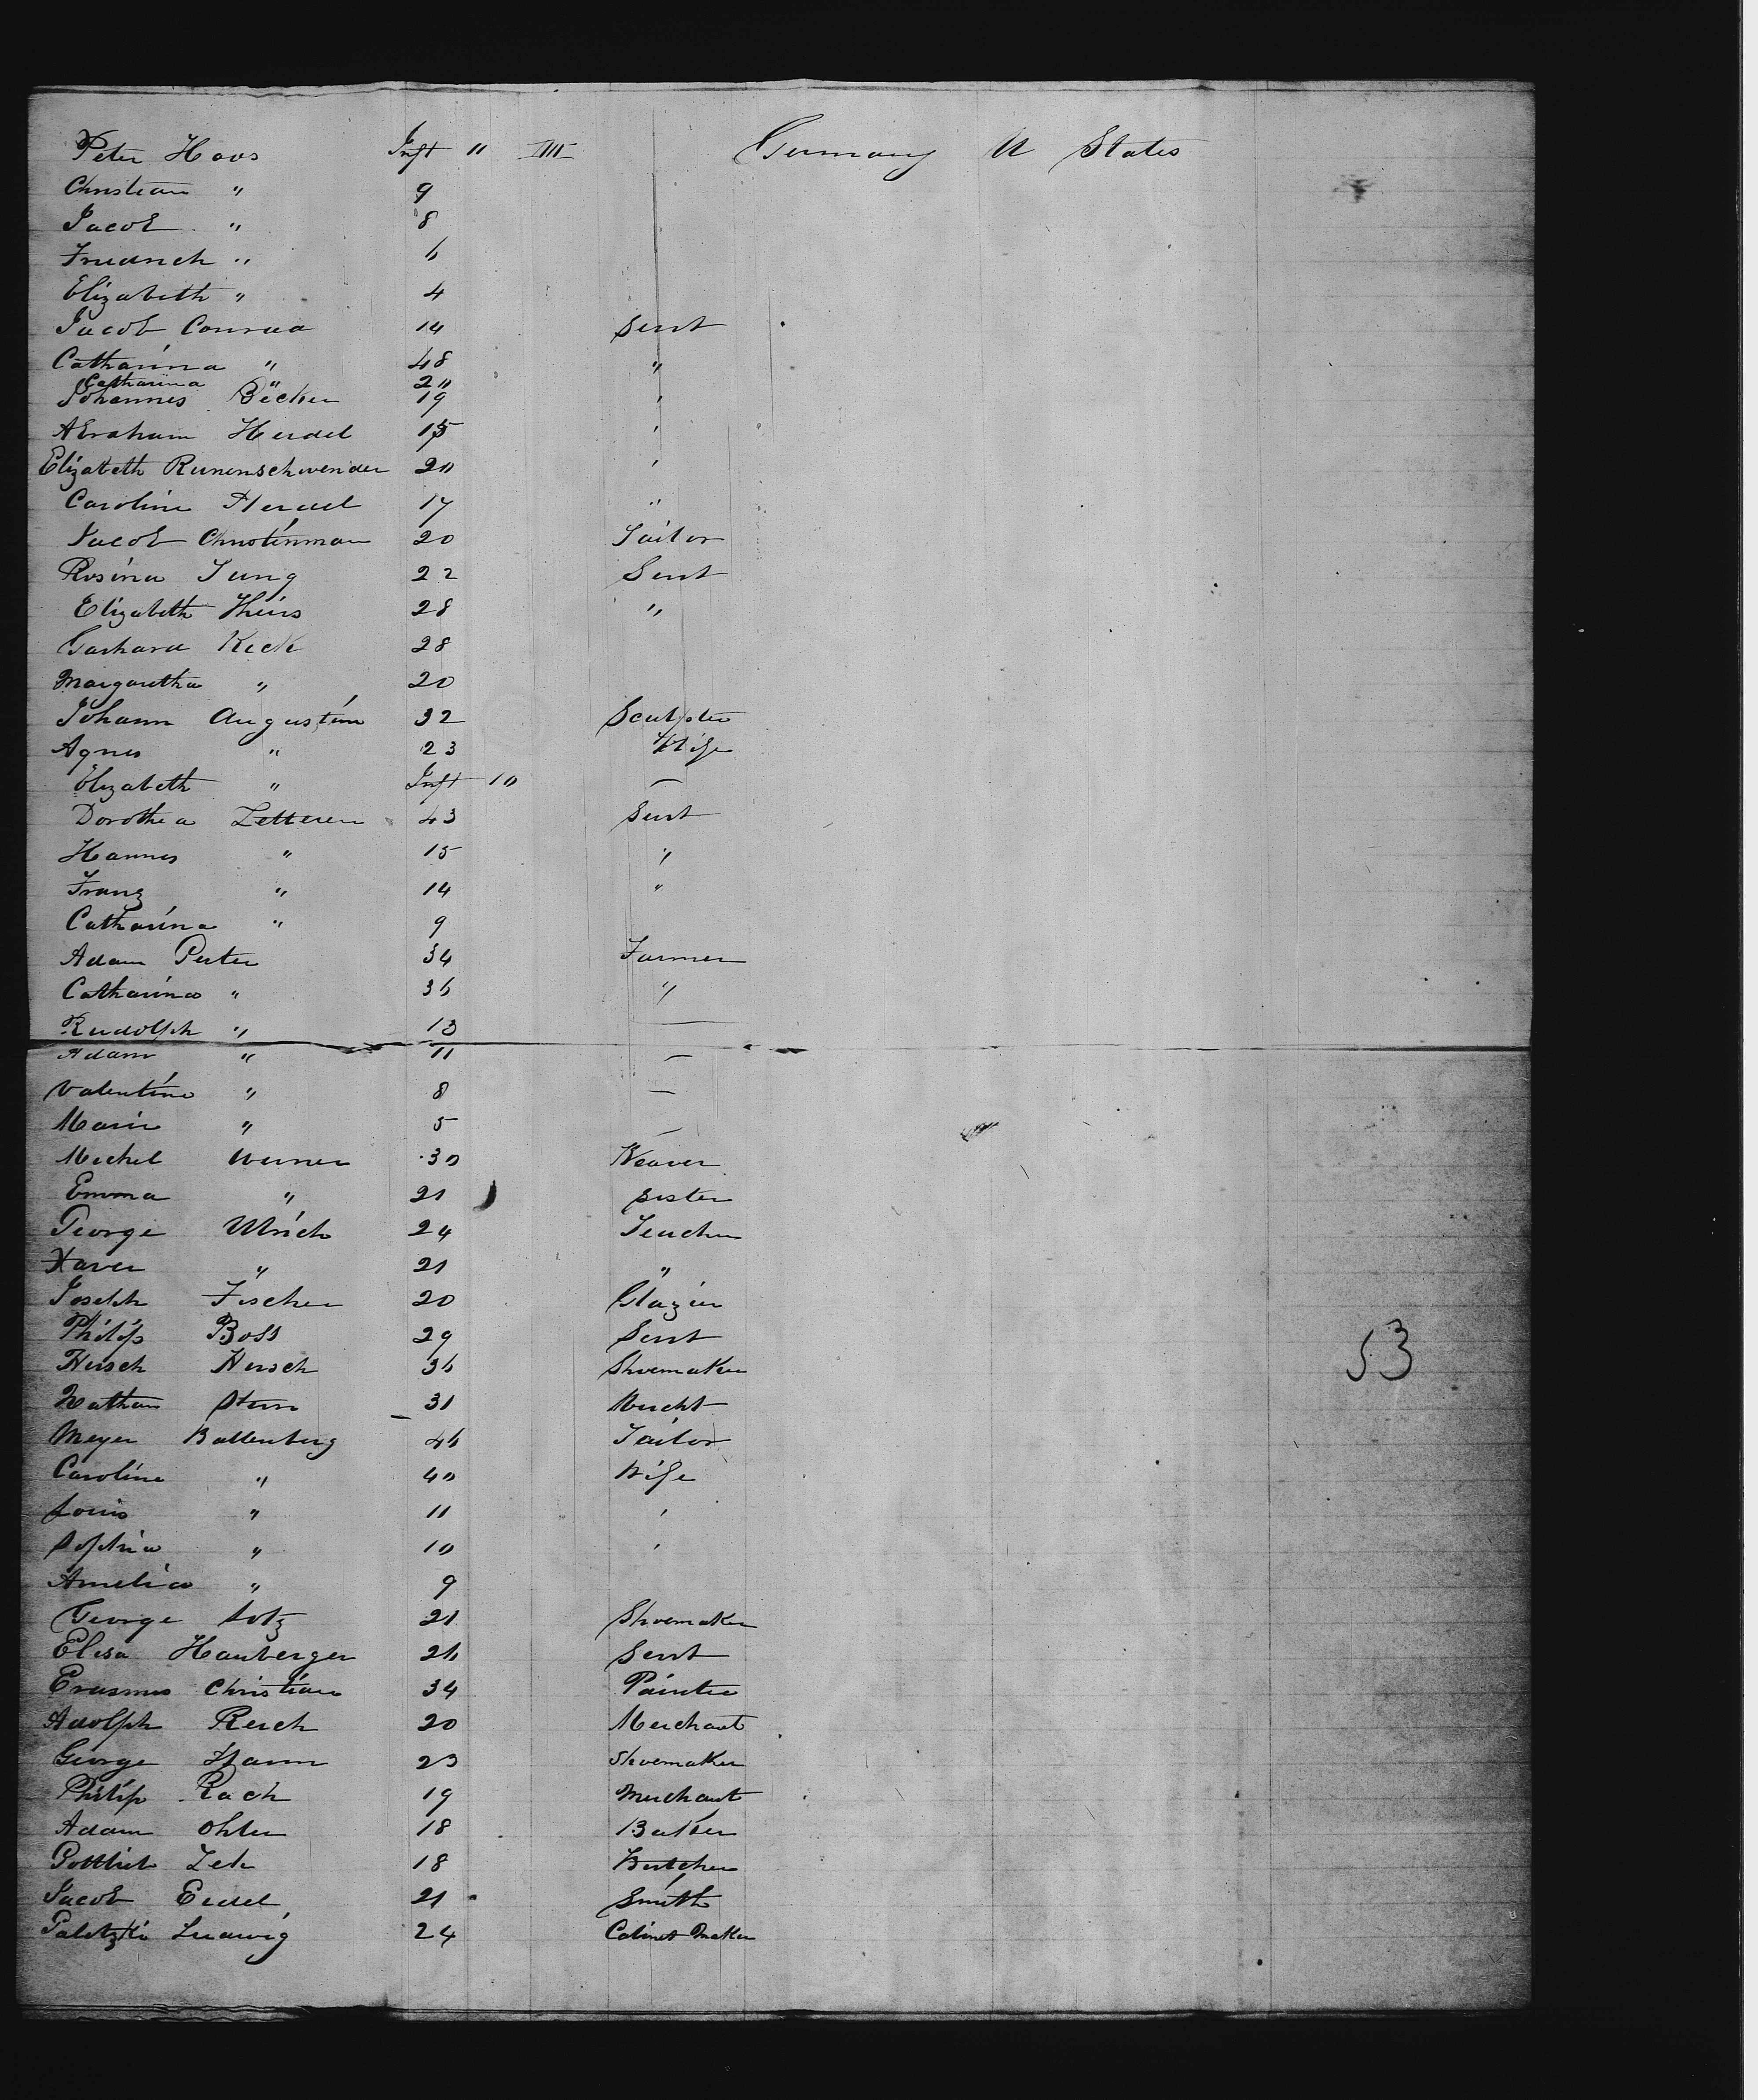 Peter Hoos Inft 11 IIII Germany U States
Christian " 9
Jacob " 8
Friedrich " 6
Elizabeth " 4
Jacob Conrad 14 Servt
Catharina " 48 "
Catharina " 20
Johannes Becker 19 "
Abraham Heidel 15 "
Elizabeth 20 "
Caroline Heidel 17 "
Jacob Christinman 20 Tailor
Rosina Jung 22 Servt
Elizabeth 28 "
Garhard Keck 28
Margaretha " 20
Johann Augustin 32 Sculpter
Agnes " 23 Wife
Elizabeth " Inft 10 —
Dorothea Zetterer 43 Servt
Hannes " 15 "
Franz " 14 "
Catharina " 9
Adam Peter 34 Farmer
Catharina " 36 "
Rudolph " 13 —
Adam " 11 —
Valentine " 8 —
Marie " 5 —
Michel Werner 30 Weaver
Emma " 21 sister
George Ulrich 24 Teacher
Xaver " 21 "
Joseph Fischer 20 Glazier
Philip Boss 29 Servt
Hirsch Hirsch 36 Shoemaker
Nathan Stern 31 Mercht
Meyer Ballenberg 46 Tailor
Caroline " 40 Wife
Louis " 11 "
Sophia " 10 "
Amelia " 9
George Lotz 21 Shoemaker
Elisa Hauberger 26 Servt
Erasmus Christian 34 Painter
Adolph Reich 20 Merchant
George Hann 23 Shoemaker
Philip Rach 19 Merchant
Adam Ohler 18 Baker
Gottlieb Zeh 18 Butcher
Jacob Eidel 21 Smith
Paletzki Ludwig 24 Cabinet Maker
53